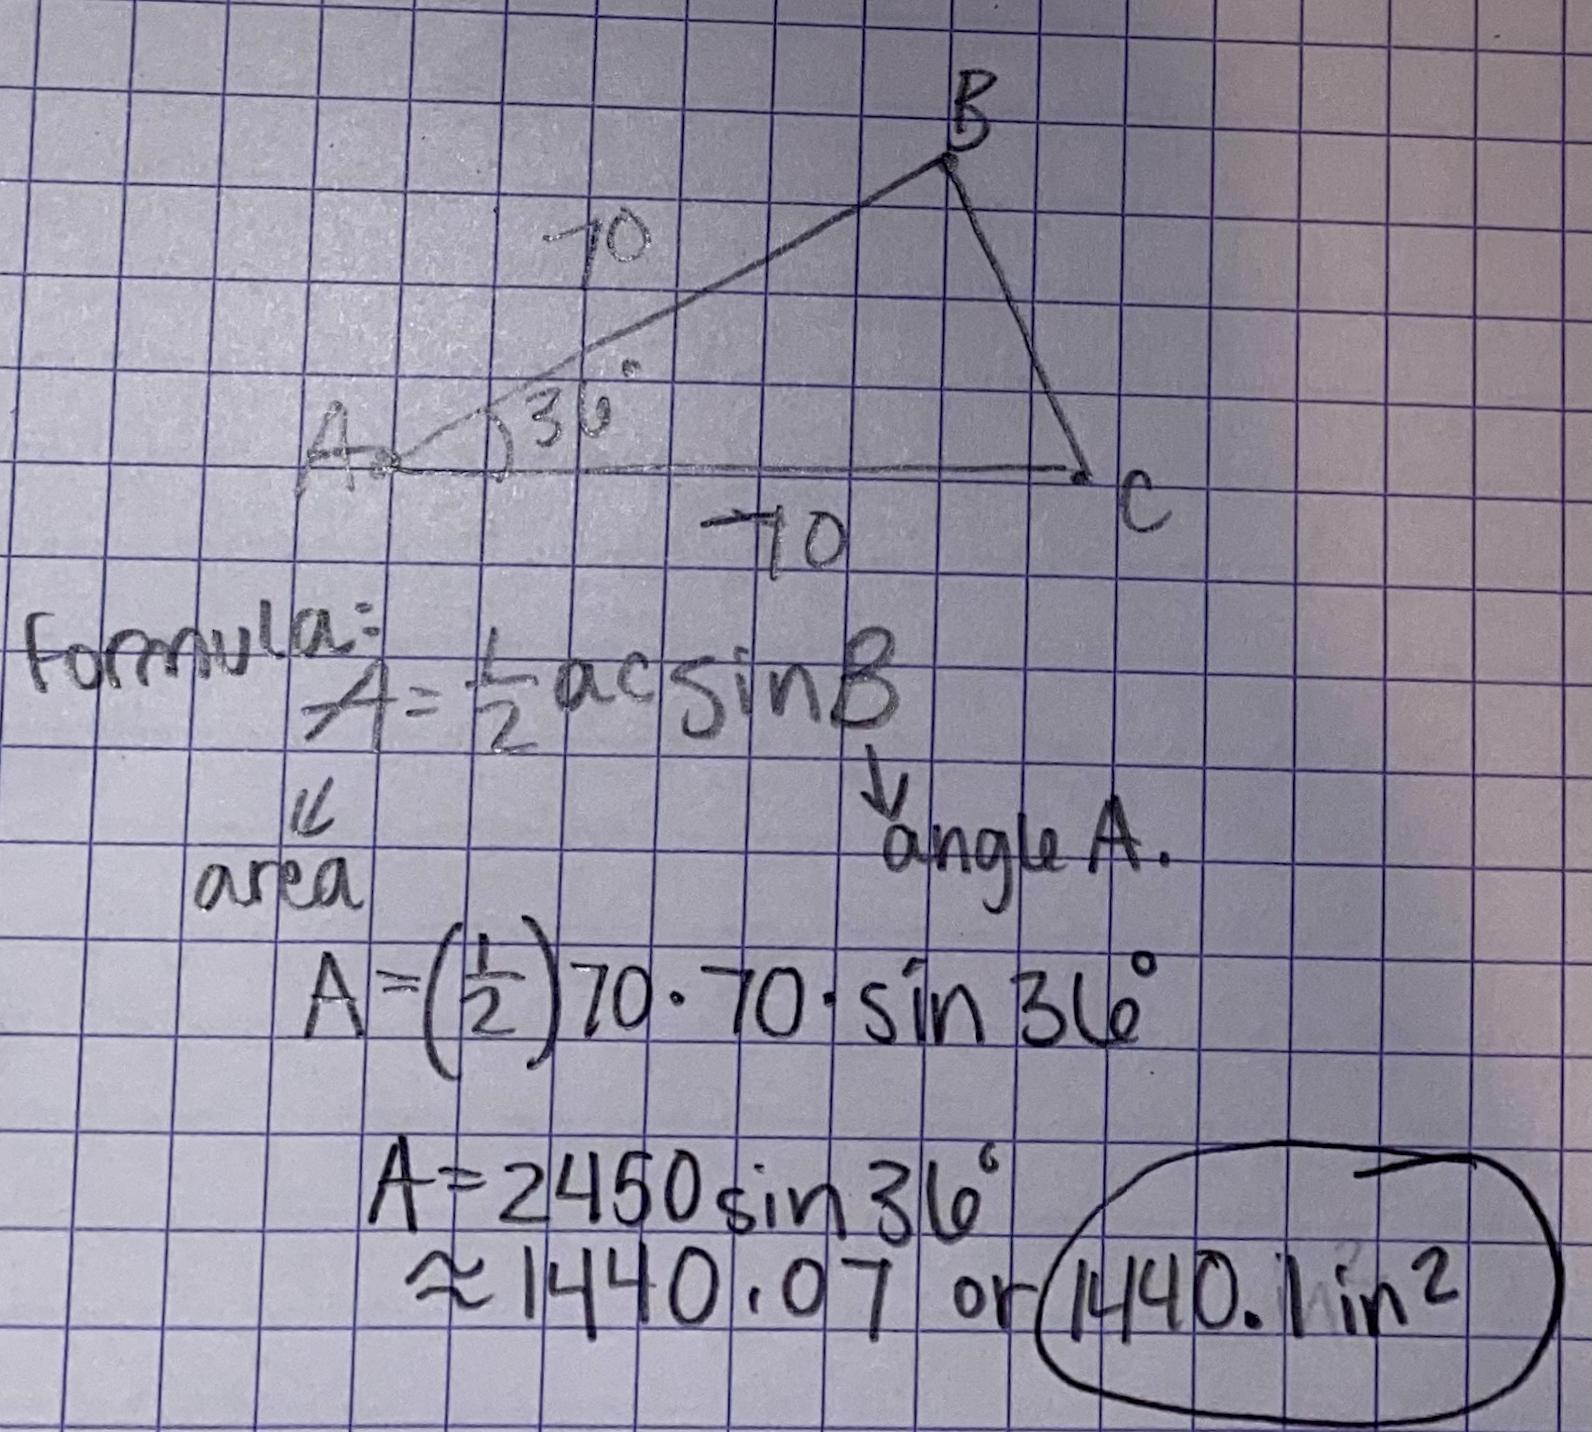 B
70
36°
A
C
70
Formula:
A = 1/2 ac sin B
area
angle A.
A = (1/2) 70 · 70 · sin 36°
A = 2450 sin 36°
≈ 1440.07 or 1440.1 in²